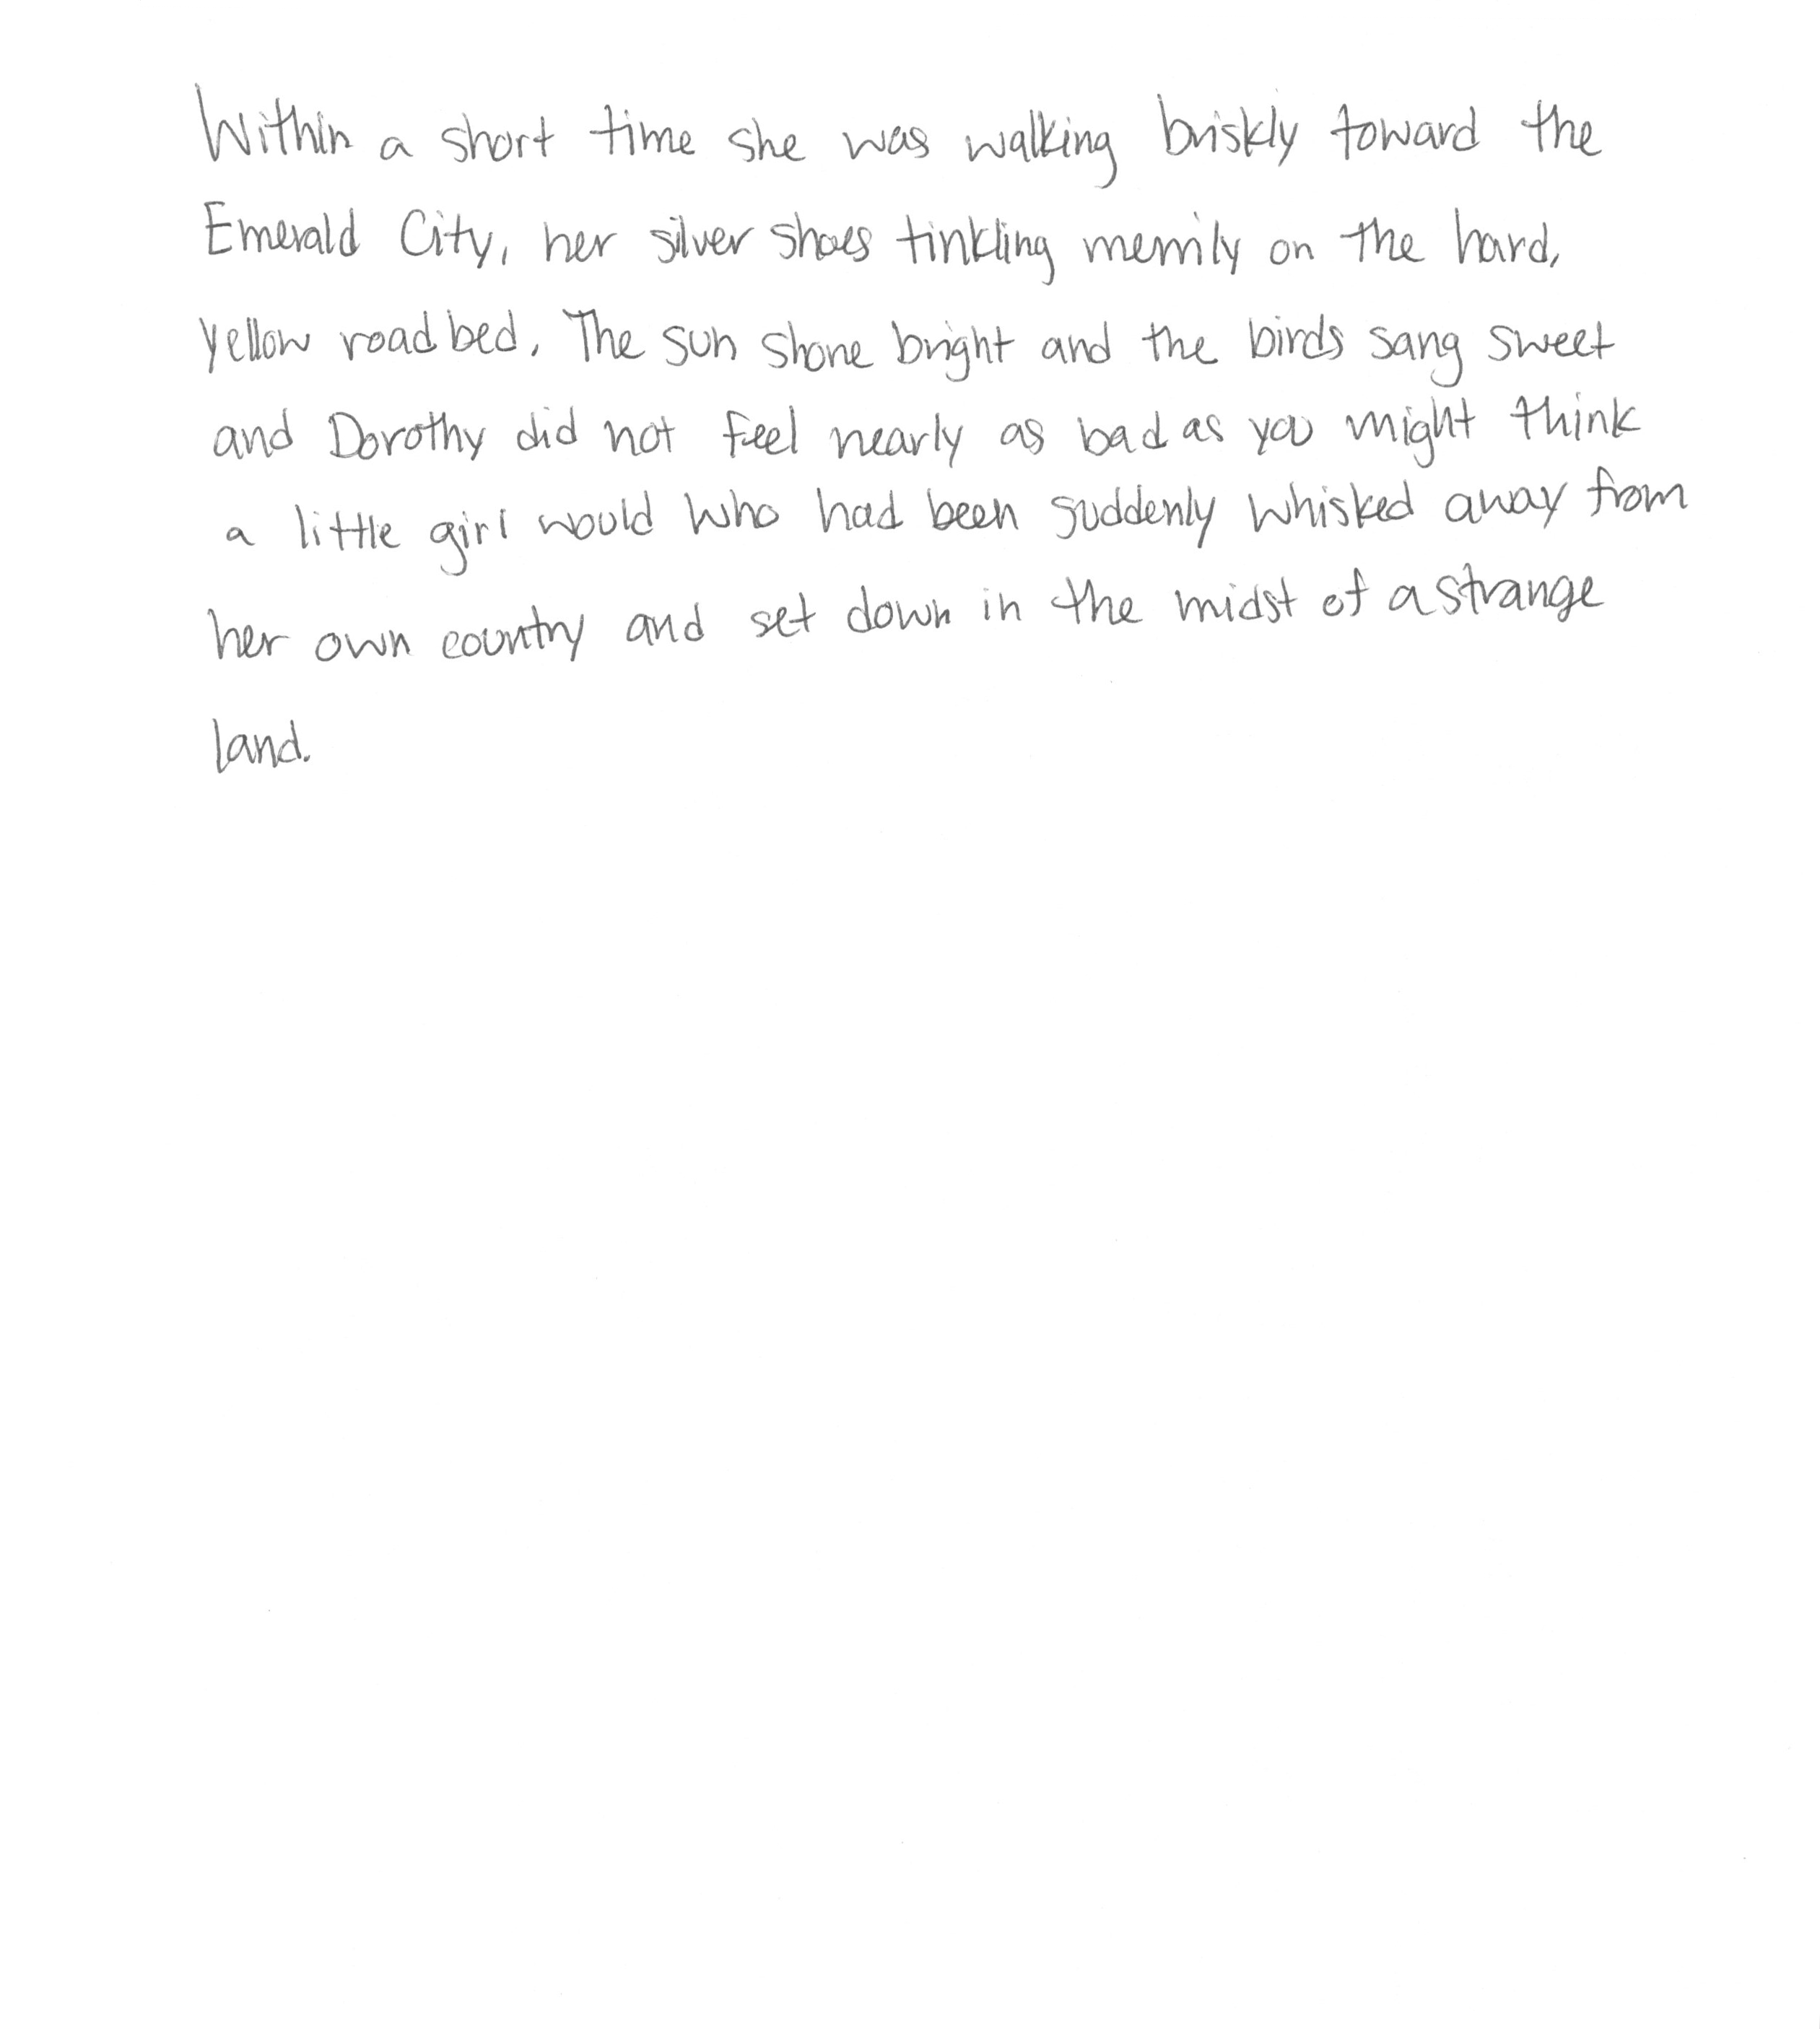 Within a short time she was walking briskly toward the
Emerald City, her silver shoes tinkling merrily on the hard,
yellow road bed. The sun shone bright and the birds sang sweet
and Dorothy did not feel nearly as bad as you might think
a little girl would who had been suddenly whisked away from
her own country and set down in the midst of a strange
land.